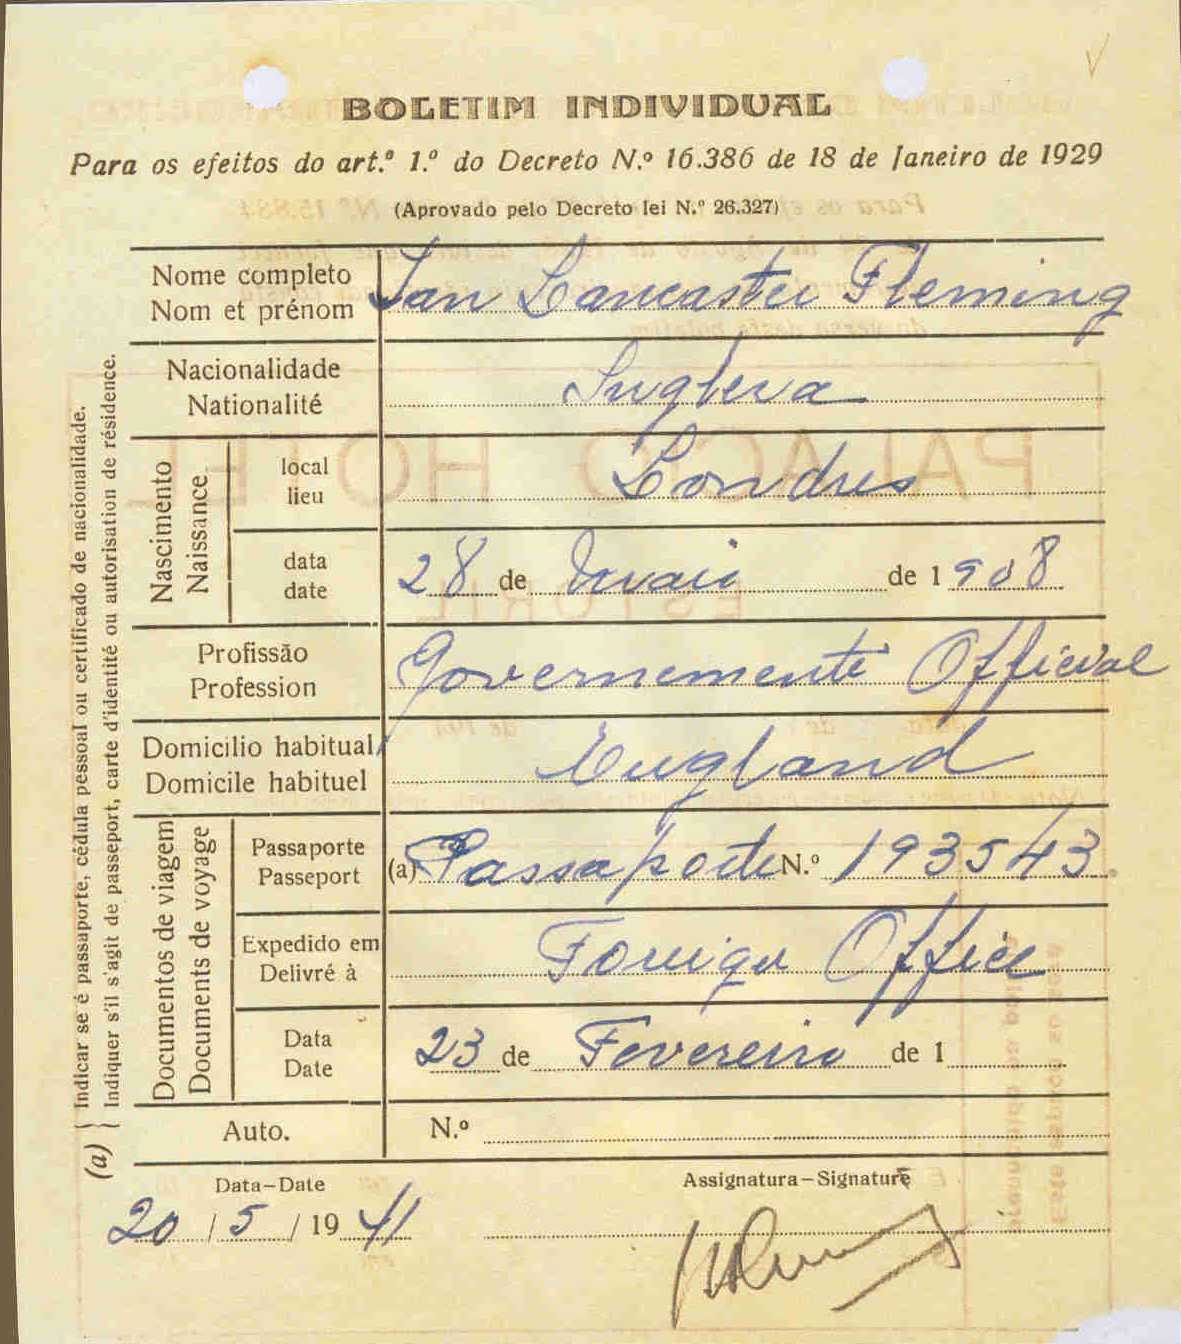 BOLETIM INDIVIDUAL
Para os efeitos do art.º 1.º do Decreto N.º 16.386 de 18 de Janeiro de 1929
(Aprovado pelo Decreto lei N.º 26.327)
Nome completo
Nom et prénom
Ian Lancaster Fleming
Nacionalidade
Nationalité
Inglesa
Nascimento
Naissance
local
lieu
Londres
data
date
28 de Maio de 1908
Profissão
Profession
Governemente Official
Domicilio habitual
Domicile habituel
England
Documentos de viagem
Documents de voyage
Passaporte
Passeport
(a) Passaporte N.º 193543
Expedido em
Delivré à
Foreign Office
Data
Date
23 de Fevereiro de 1
Auto.
N.º
(a) { Indicar se é passaporte, cédula pessoal ou certificado de nacionalidade.
Indiquer s'il s'agit de passeport, carte d'identité ou autorisation de résidence.
Data-Date
20/5/1941
Assignatura-Signature
PALACIO HOTEL
ESTORIL